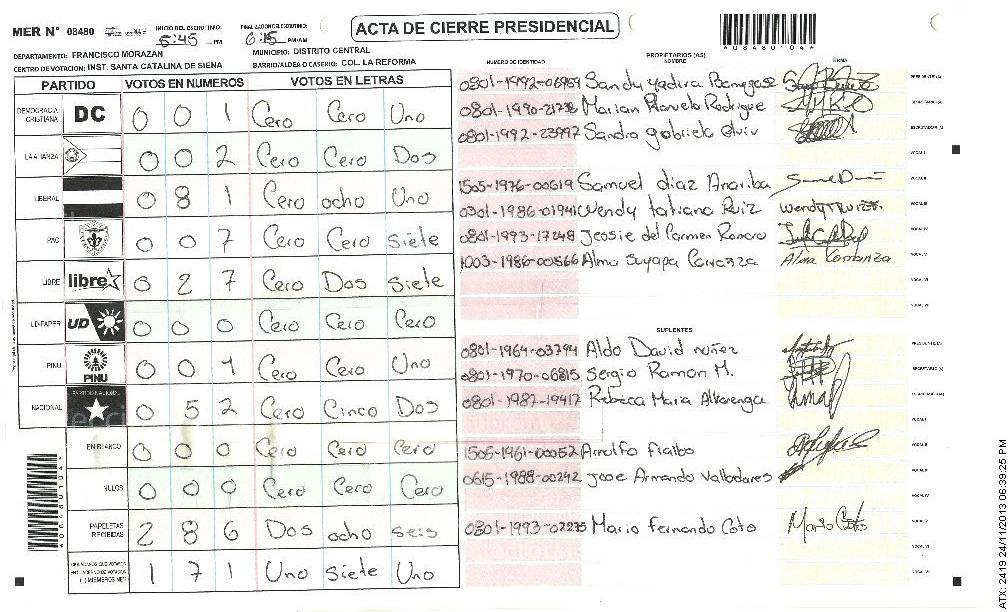 MER N° 08480
INICIO DEL ESCRUTINIO: 5:45 PM
FINALIZACION ESCRUTINIO: 6:15 PM/AM
ACTA DE CIERRE PRESIDENCIAL
*08480104*
DEPARTAMENTO: FRANCISCO MORAZAN
MUNICIPIO: DISTRITO CENTRAL
CENTRO DE VOTACION: INST. SANTA CATALINA DE SIENA
BARRIO/ALDEA O CASERIO: COL. LA REFORMA
PARTIDO VOTOS EN NUMEROS VOTOS EN LETRAS
DEMOCRACIA CRISTIANA DC 0 0 1 Cero Cero Uno
LA ALIANZA 0 0 2 Cero Cero Dos
LIBERAL 0 8 1 Cero ocho Uno
PAC 0 0 7 Cero Cero siete
LIBRE libre 0 2 7 Cero Dos siete
UD-FAPER UD 0 0 0 Cero Cero Cero
PINU PINU 0 0 1 Cero Cero Uno
NACIONAL PARTIDO NACIONAL 0 5 2 Cero Cinco Dos
EN BLANCO 0 0 0 Cero Cero Cero
NULOS 0 0 0 Cero Cero Cero
PAPELETAS RECIBIDAS 2 8 6 Dos ocho seis
CIUDADANOS QUE VOTARON EN CUADERNO DE VOTACION (+) MIEMBROS MER 1 7 1 Uno siete Uno
NUMERO DE IDENTIDAD PROPIETARIOS (AS) NOMBRE FIRMA
0801-1992-06959 Sandy Yadira PRESIDENTE (A)
0801-1990-21738 Marian SECRETARIO (A)
0801-1992-23997 Sandra gabriela ESCRUTADOR (A)
VOCAL I
1505-1976-00619 Samuel diaz Anariba VOCAL II
0301-1986-01941 Wendy tatiana Ruiz VOCAL III
0801-1993-17248 Jessie del Carmen Romero VOCAL IV
1003-1986-00566 Alma Suyapa Carranza Alma Carranza VOCAL V
VOCAL VI
VOCAL VII
SUPLENTES
0801-1964-03794 Aldo David nuñez PRESIDENTE (A)
0801-1970-06815 Sergio Ramon M. SECRETARIO (A)
0801-1987-19417 Rebeca Maria Alvarenga ESCRUTADOR (A)
VOCAL I
1505-1961-00052 Arnulfo VOCAL II
0615-1988-00242 Jose Armando Valladares VOCAL III
VOCAL IV
0801-1993-02275 Mario Fernando Coto VOCAL V
VOCAL VI
VOCAL VII
*08480104*
ATX: 2419 24/11/2013 06:39:25 PM